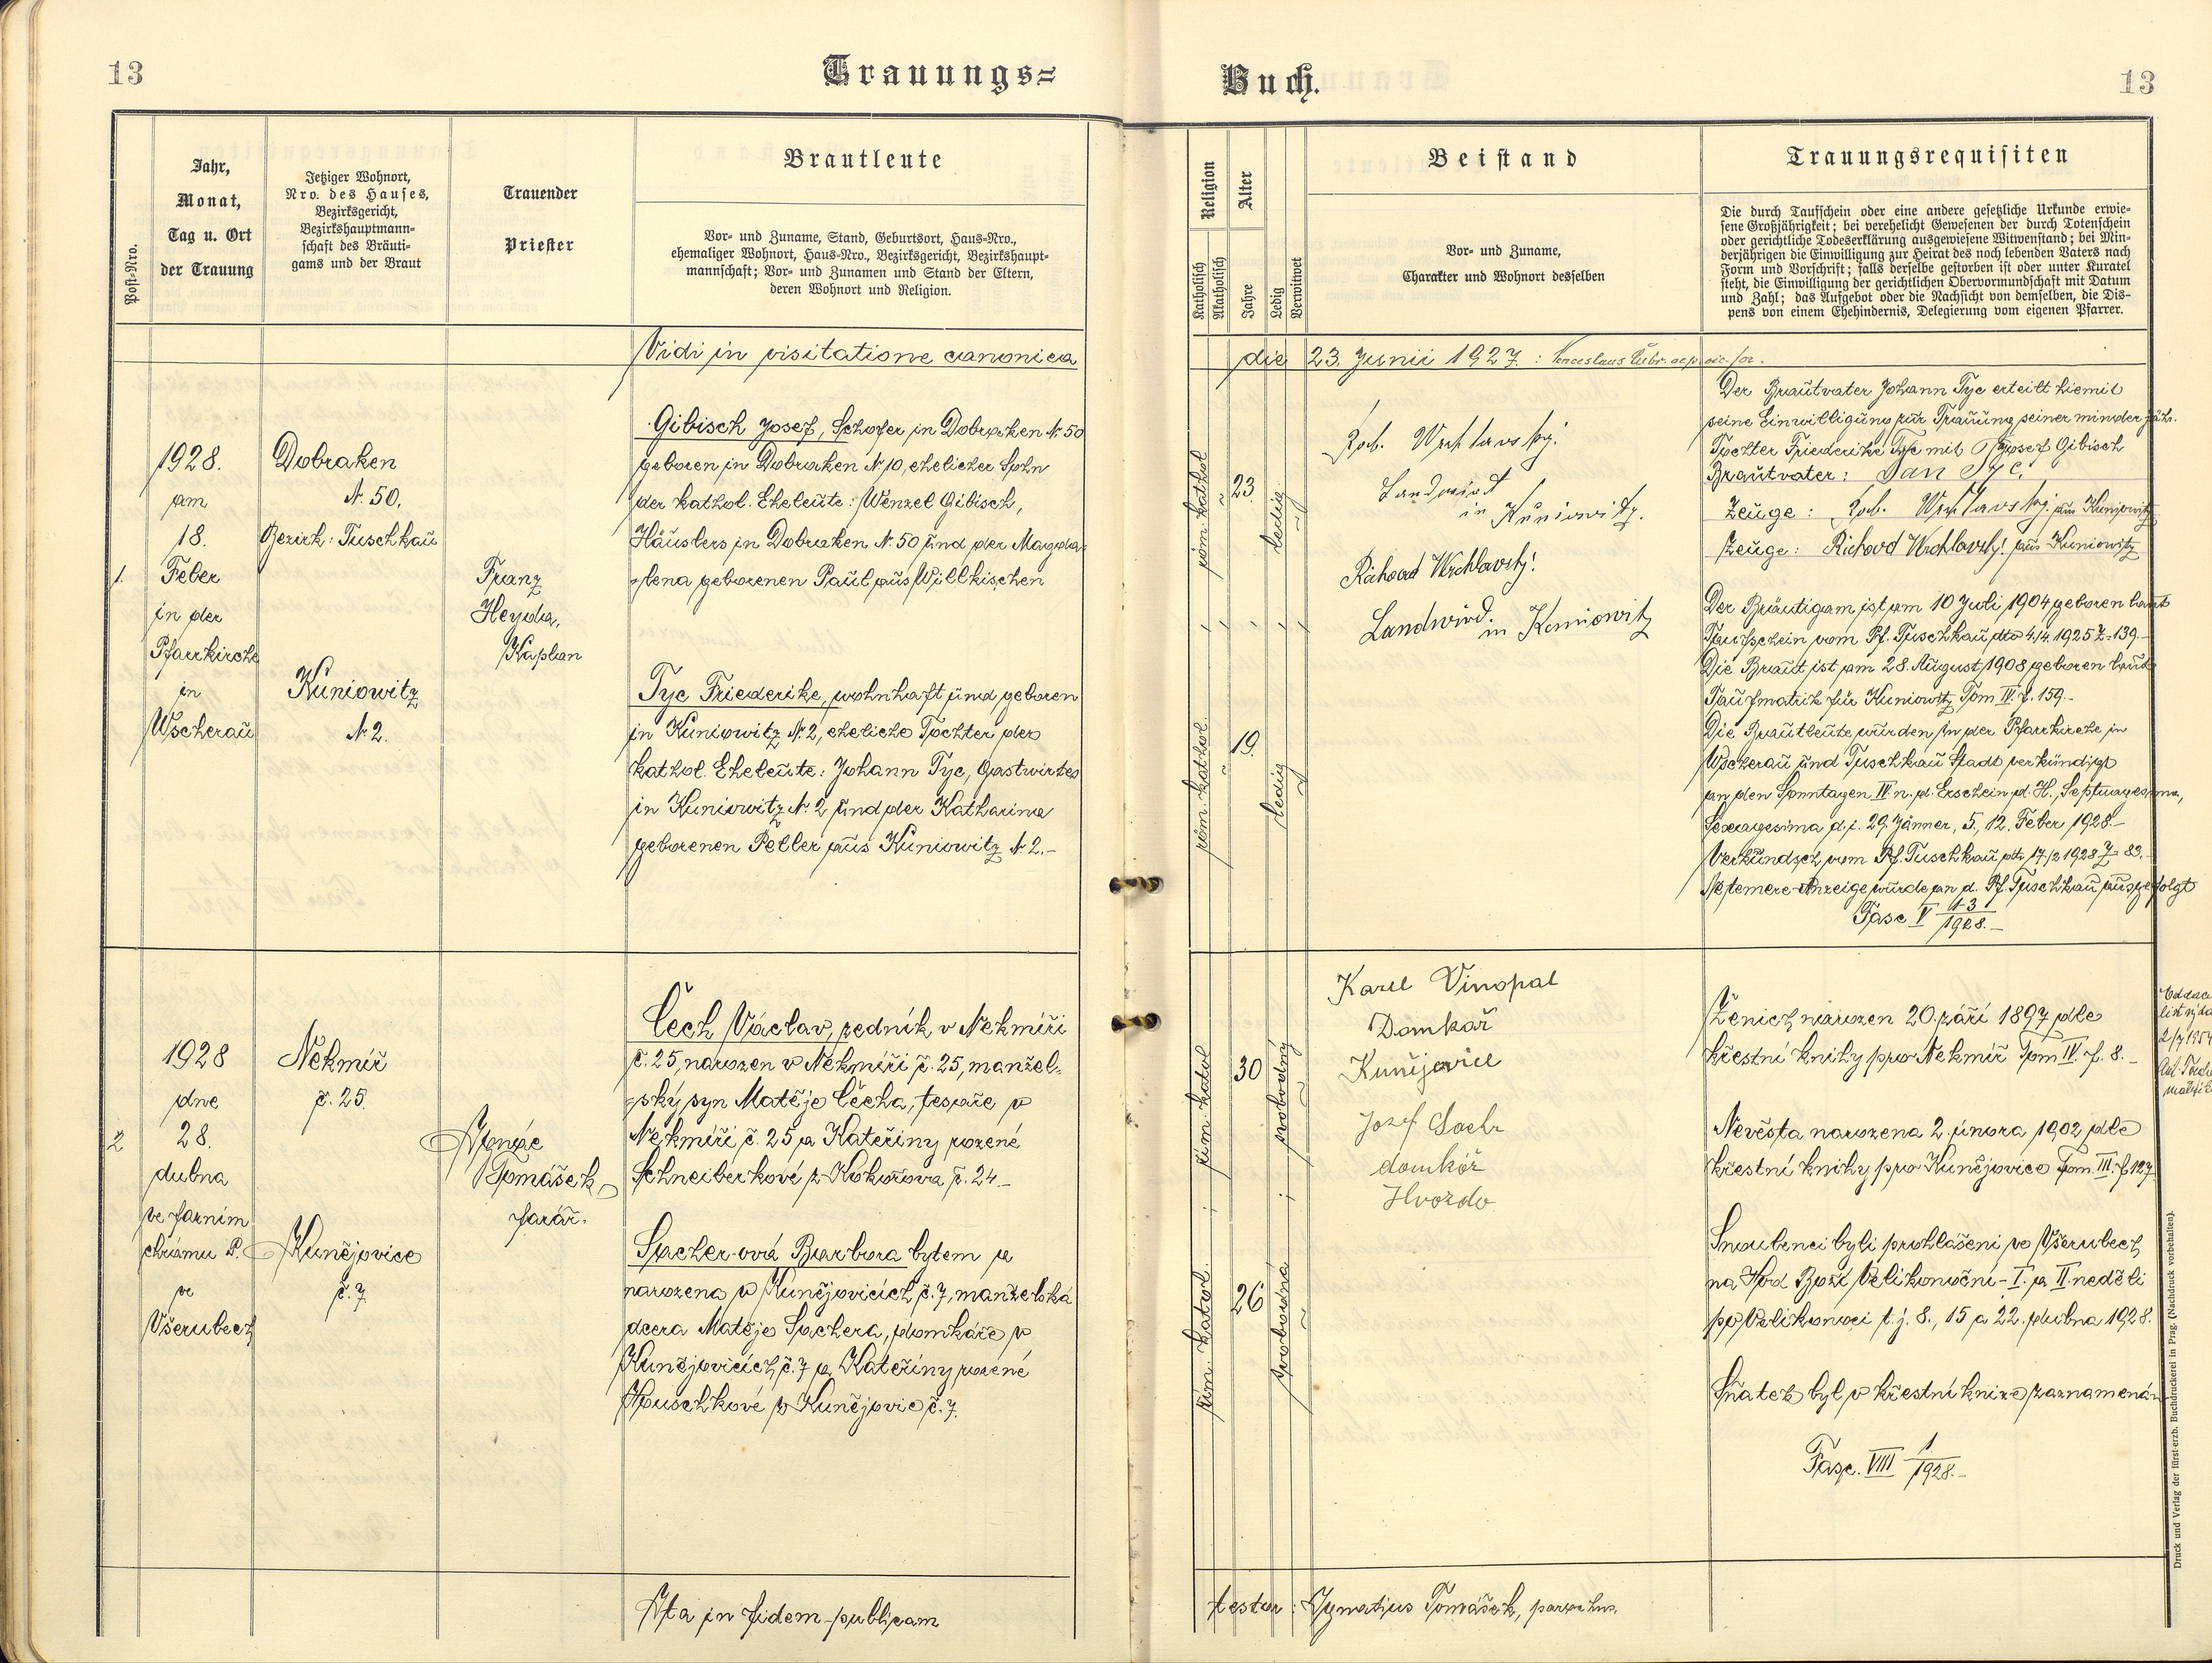 13
Trauungs=
Buch.
13
Post-Nro.
Jahr,
Monat,
Tag u. Ort
der Trauung
Jetziger Wohnort,
Nro. des Hauses,
Bezirksgericht,
Bezirkshauptmann-
schaft des Bräuti-
gams und der Braut
Trauender
Priester
Brautleute
Vor- und Zuname, Stand, Geburtsort, Haus-Nro.,
ehemaliger Wohnort, Haus-Nro., Bezirksgericht, Bezirkshaupt-
mannschaft; Vor- und Zunamen und Stand der Eltern,
deren Wohnort und Religion.
Religion
Katholisch
Akatholisch
Alter
Jahre
Ledig
Verwitwet
Beistand
Vor- und Zuname,
Charakter und Wohnort desselben
Trauungsrequisiten
Die durch Taufschein oder eine andere gesetzliche Urkunde erwie-
sene Großjährigkeit; bei verehelicht Gewesenen der durch Totenschein
oder gerichtliche Todeserklärung ausgewiesene Witwenstand; bei Min-
derjährigen die Einwilligung zur Heirat des noch lebenden Vaters nach
Form und Vorschrift; falls derselbe gestorben ist oder unter Kuratel
steht, die Einwilligung der gerichtlichen Obervormundschaft mit Datum
und Zahl; das Aufgebot oder die Nachsicht von demselben, die Dis-
pens von einem Ehehindernis, Delegierung vom eigenen Pfarrer.
Vidi in visitatione canonica
die 23. Junii 1927 :
1.
1928.
am
18.
Feber
in der
Pfarrkirche
in
Wscherau
Dobraken
N. 50.
Bezirk: Tuschkau
Kuniowitz
N. 2.
Franz
Heyda,
Kaplan
Gibisch Josef, Schofer in Dobraken N. 50
geboren in Dobraken N. 10, ehelicher Sohn
der kathol. Eheleute: Wenzel Gibisch,
Häuslers in Dobraken N. 50 und der Magda-
-lena geborenen Paul aus Willkischen
Tyc Friederike, wohnhaft und geboren
in Kuniowitz N. 2, eheliche Tochter der
kathol. Eheleute: Johann Tyc, Gastwirtes
in Kuniowitz N. 2 und der Katharina
geborenen Peller aus Kuniowitz N. 2.-
röm. kathol
23.
ledig
röm. kathol.
19.
ledig
Rob. Wrchlavský.
Landwird
in Kuniowitz.
Richard Wrchlavský!
Landwird.
in Kuniowitz
Der Brautvater Johann Tyc erteilt hiemit
seine Einwilligung zur Trauung seiner minderjähr.
Tochter Friederike Tyc mit Josef Gibisch
Brautvater: Jan Tyc.
Zeuge: Rob. Wrchlavský. aus Kuniowitz
Zeuge: Richard Wrchlavský! aus Kuniowitz
Der Bräutigam ist am 10 Juli 1904 geboren laut
Taufschein vom Pf. Tuschkau dto 4./4. 1925 Z=139.-
Die Braut ist am 28. August 1908 geboren laut
Taufmatrik für Kuniowitz Tom III. f. 159.-
Die Brautleute wurden in der Pfarrkirche in
Wscherau und Tuschkau Stadt verkündigt
an den Sonntagen IV n. d. Erschein. d. H., Septuagesima,
Sexagesima d. i. 29. Jänner, 5., 12. Feber 1928.-
Verkündsch. vom Pf. Tuschkau dto 17./2 1928 Z= 83.-
Netemere-Anzeige wurde an d. Pf. Tuschkau ausgefolgt
Fasc V 13/1928.-
2
1928
dne
28.
dubna
ve farním
chrámu P.
ve
Všerubech
Nekmíř
č. 25.
Kunějovice
č. 7
Ignác
Tomášek,
farář.
Čech Václav, zedník v Nekmíři
č. 25, narozen v Nekmíři č. 25, manžel-
-ský syn Matěje Čecha, tesaře v
Nekmíři č. 25 a Kateřiny rozené
Schneiberkové z Kokořova č. 24.-
Spacher-ová Barbora bytem a
narozena v Kunějovicích č. 7, manželská
dcera Matěje Spachera, domkáře v
Kunějovicích č. 7 a Kateřiny rozené
Houschkové z Kunějovic č. 7.
řím. katol.
30
svobodný
řím. katol.
26
svobodná
Karel Vinopal
Domkář
Kunějovice
Jozef
domkář
Hvozdo
Ženich narozen 20. září 1897 dle
křestní knihy pro Nekmíř Tom IV. f. 8.-
Nevěsta narozena 2. února 1902 dle
křestní knihy pro Kunějovice Tom. III. f. 127.
Snoubenci byli prohlášeni ve Všerubech
na Hod Boží Velikonoční - I. a II. neděli
po Velikonoci t. j. 8., 15 a 22. dubna 1928.
Sňatek byl v křestní knize zaznamenán
Fasc. VIII 1/1928.-
Ita in fidem publicam
testor: Ignatius Tomášek, parochus.
Druck und Verlag der fürst-erzb. Buchdruckerei in Prag. (Nachdruck vorbehalten).